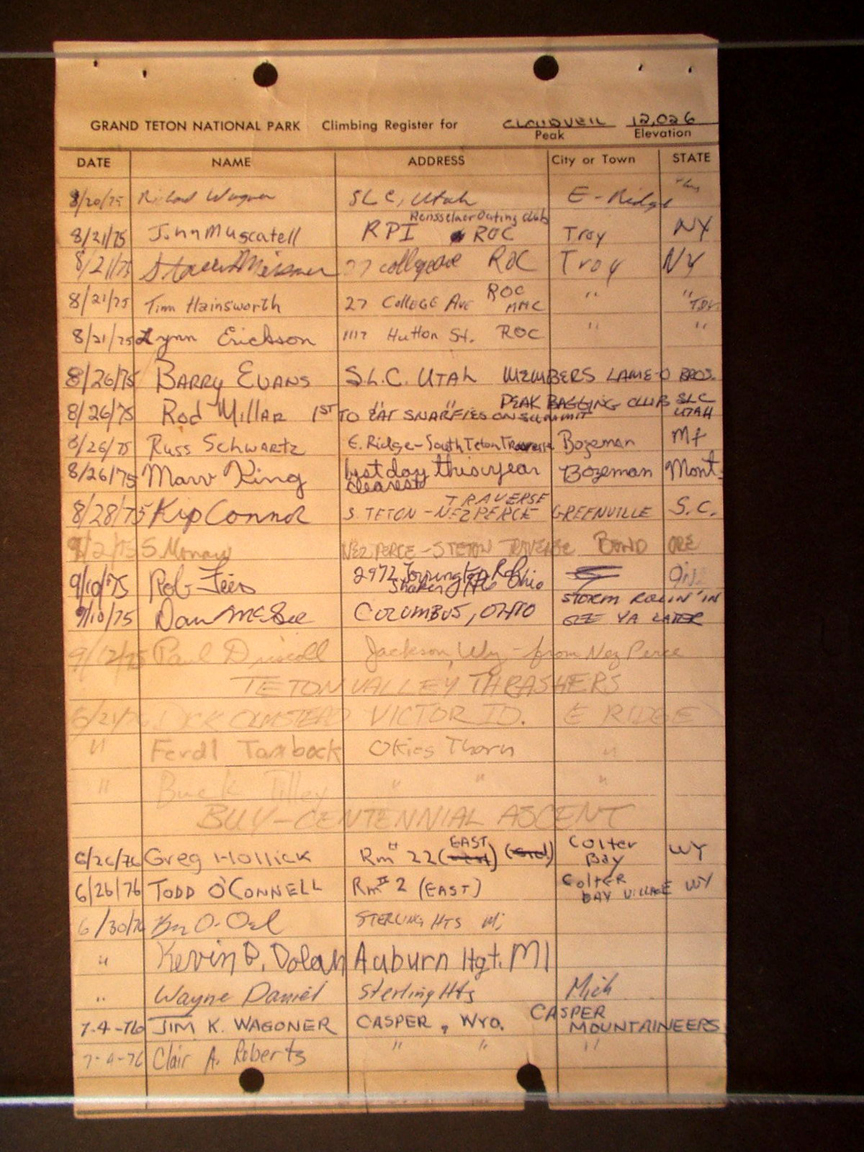 GRAND TETON NATIONAL PARK Climbing Register for CLOUDVEIL 12,026
Peak Elevation
DATE NAME ADDRESS City or Town STATE
8/20/75 Richard Wagner SLC, Utah E-Ridge
Rensselaer Outing Club
8/21/75 John Muscatell RPI ROC Troy NY
8/21/75 77 college ave ROC Troy NY
8/21/75 Tim Hainsworth 27 College Ave ROC MMC " "
8/21/75 Lynn Erickson 1117 Hutton St. ROC " "
8/26/75 BARRY EVANS S.L.C. UTAH MEMBERS LAME-O BROS.
PEAK BAGGING CLUB SLC UTAH
8/26/75 Rod Millar 1ST TO EAT SNARFIES ON SUMMIT
8/26/75 Russ Schwartz E. Ridge-South Teton Traverse Bozeman Mt
8/26/75 Marv King best day this year Bozeman Mont.
clearest
8/28/75 Kip Connor S. TETON - NEZ PERCE TRAVERSE GREENVILLE S.C.
9/2/75 S NEZ PERCE - S TETON TRAVERSE BEND ORE
9/10/75 Rob 2972 Torrington Rd
Shaker Hts Ohio
STORM ROLLIN' IN
9/10/75 Dan McGee COLUMBUS, OHIO SEE YA LATER
9/12/75 Paul Driscoll Jackson, Wy - from Nez Perce
TETON VALLEY THRASHERS
6/21/76 DICK OLMSTEAD VICTOR ID. E RIDGE
" Ferdl Tambock Okies Thorn "
" Buck Tilley " " "
BUY-CENTENNIAL ASCENT
6/26/76 Greg Hollick Rm 22 (EAST) Colter Bay WY
6/26/76 TODD O'CONNELL Rm 2 (EAST) Colter BAY VILLAGE WY
6/30/76 STERLING HTS Mi
" Kevin P. Dolan Auburn Hgt. MI
" Wayne Daniel Sterling Hts Mich
7-4-76 JIM K. WAGONER CASPER, WYO. CASPER MOUNTAINEERS
7-4-76 Clair A. Roberts " " "